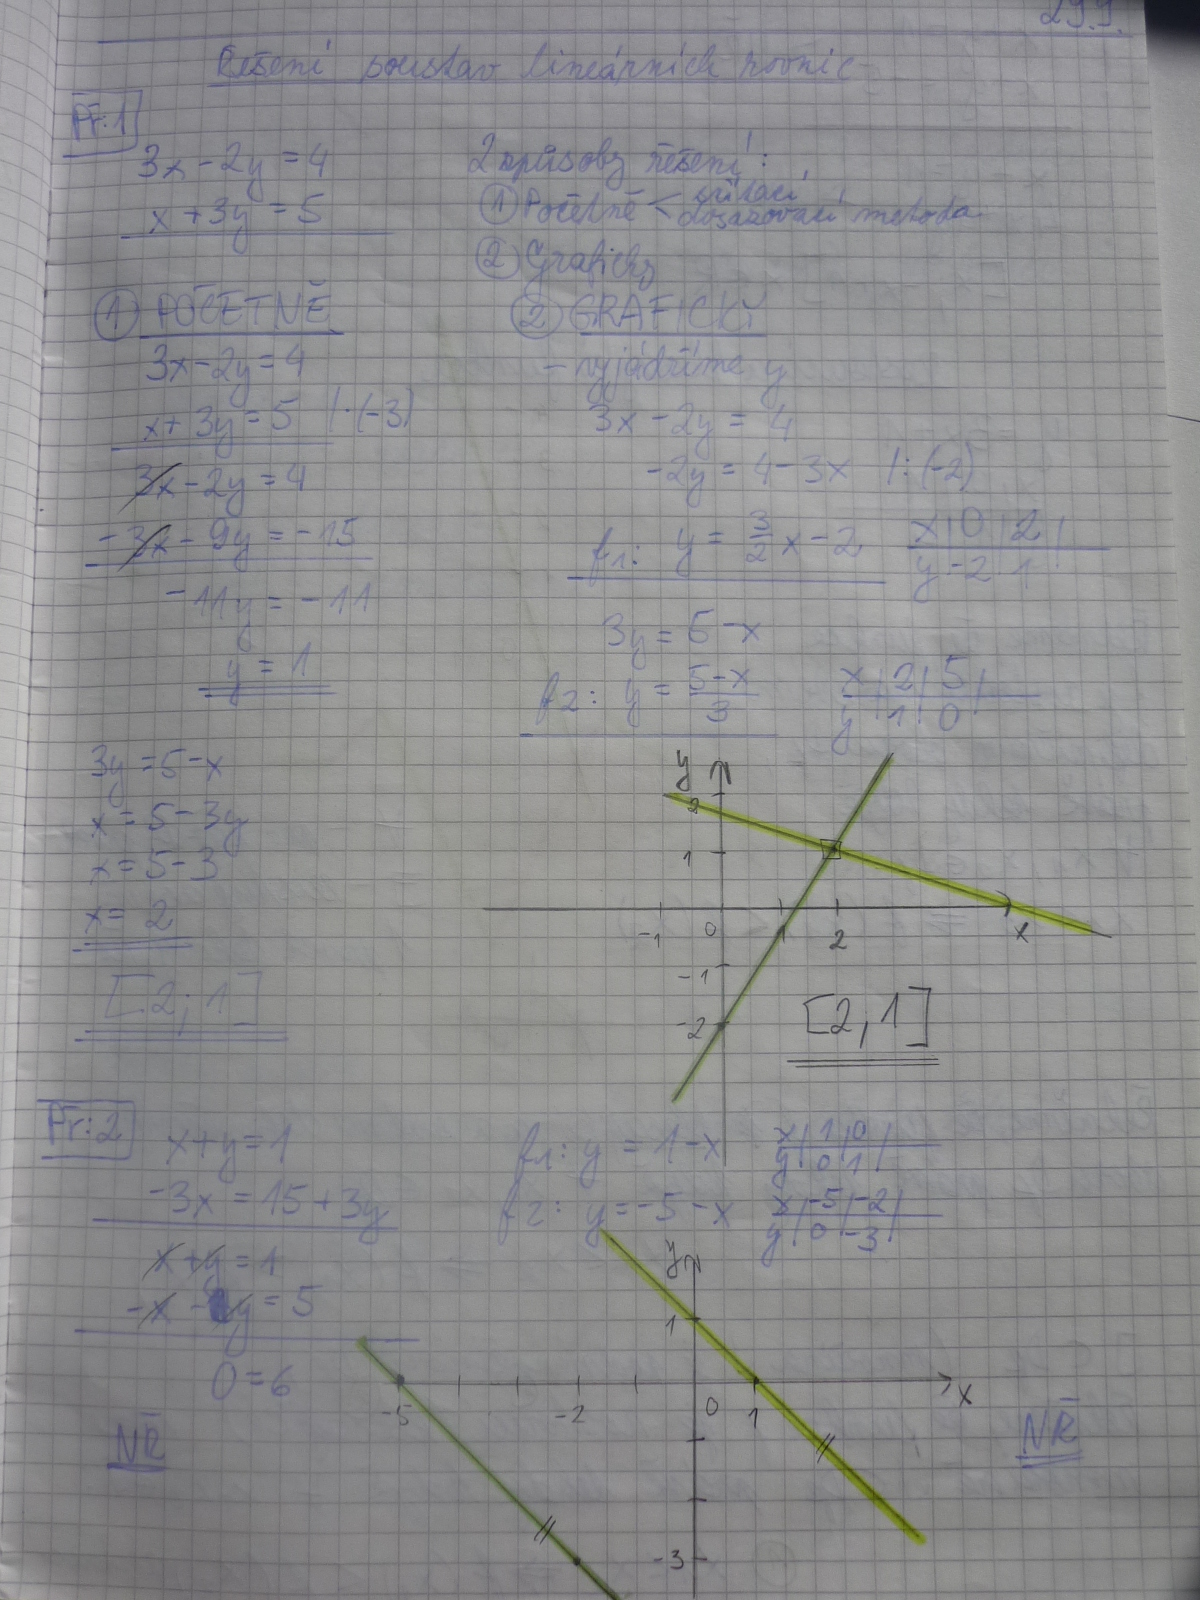 29.9.
Řešení soustav lineárních rovnic
Př:1
3x - 2y = 4
x + 3y = 5
2 způsoby řešení:
① Početně < sčítací
dosazovací metoda
② Graficky
① POČETNĚ
3x - 2y = 4
x + 3y = 5 /·(-3)
3x - 2y = 4
-3x - 9y = -15
-11y = -11
y = 1
3y = 5 - x
x = 5 - 3y
x = 5 - 3
x = 2
[2; 1]
② GRAFICKY
- vyjádříme y
3x - 2y = 4
-2y = 4 - 3x /: (-2)
f1: y = 3/2 x - 2
x | 0 | 2 |
y -2 | 1 |
3y = 5 - x
f2: y = 5-x/3
x | 2 | 5 |
y | 1 | 0 |
y
2
1
-1 0 1 2 x
-1
-2
[2, 1]
Př:2
x + y = 1
-3x = 15 + 3y
x + y = 1
-x - y = 5
0 = 6
NŘ
f1: y = 1 - x
x | 1 | 0 |
y | 0 | 1 |
f2: y = -5 - x
x | -5 | -2 |
y | 0 | -3 |
y
1
-5 -2 0 1 x
-3
NŘ